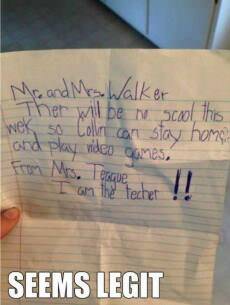 Mr. and Mrs. Walker
Ther will be no scool this
wek, so Colin can stay home
and play video games.
From Mrs. Teague
I am the techer !!
SEEMS LEGIT